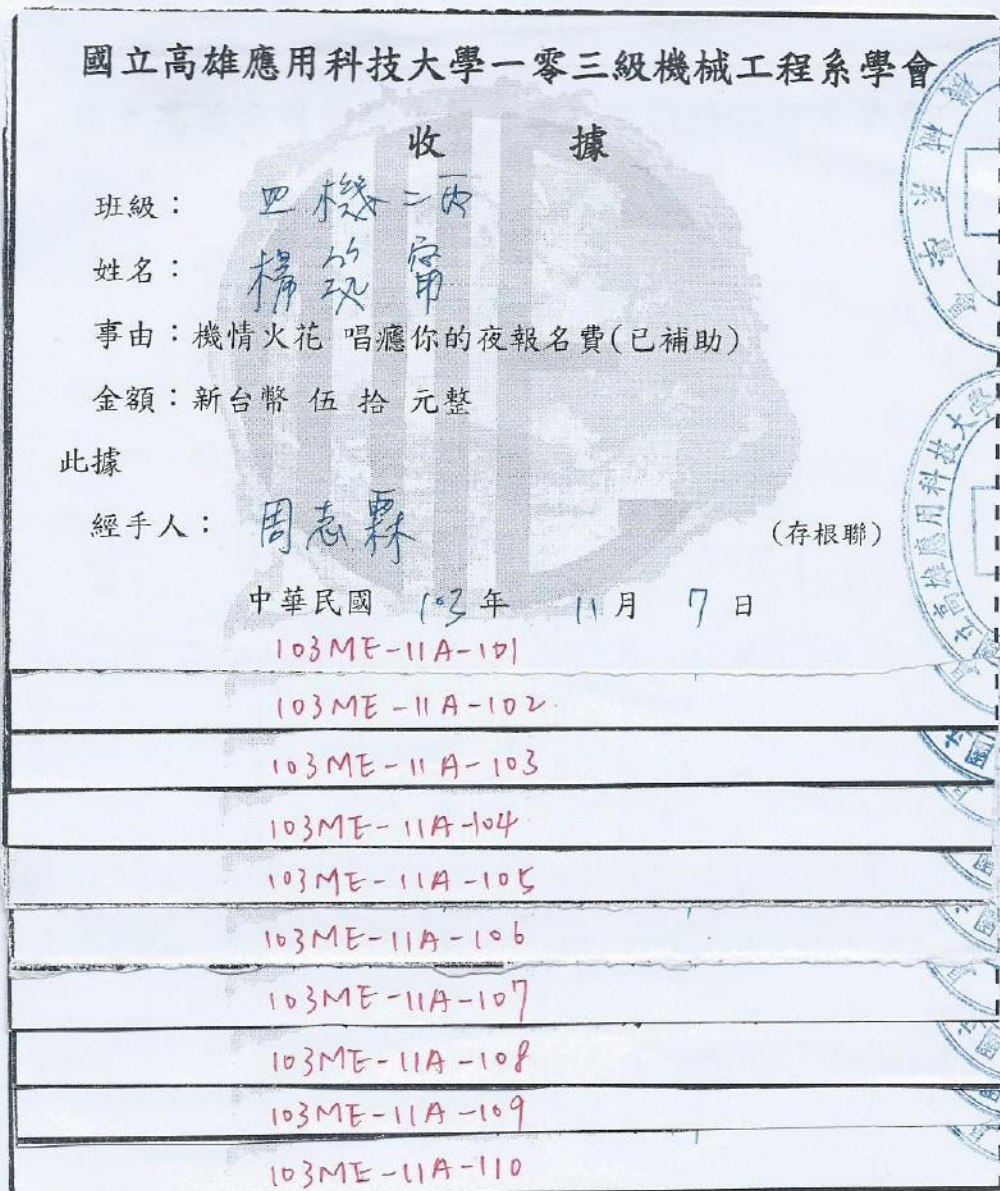 國立高雄應用科技大學一零三級機械工程系學會
收 據
班級：四機二丙
姓名：楊筑甯
事由：機情火花 唱癮你的夜報名費(已補助)
金額：新台幣 伍 拾 元整
此據
經手人：周志霖
(存根聯)
中華民國 103 年 11 月 7 日
103ME-11A-101
103ME-11A-102
103ME-11A-103
103ME-11A-104
103ME-11A-105
103ME-11A-106
103ME-11A-107
103ME-11A-108
103ME-11A-109
103ME-11A-110
國立高雄應用科技大學